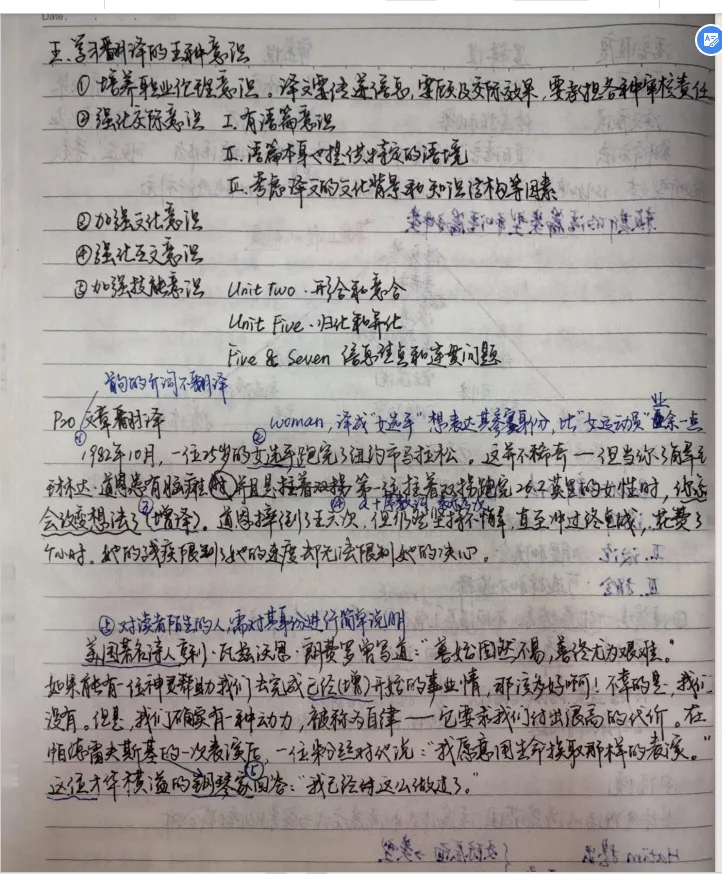 Date.
五.学习翻译的五种意识
① 培养职业伦理意识。译文要传递信息,要顾及交际效果,要承担各种审核责任
② 强化交际意识 I.有语篇意识
II.语篇本身也提供特定的语境
III.考虑译文的文化背景和知识结构等因素
③加强文化意识
④强化互文意识
⑤加强技能意识 Unit Two.形合和意合
Unit Five.归化和异化
Five & Seven 信息重点和连贯问题
前的介词不翻译
P20 文章翻译
② woman,译成"女选手"想表达其参赛身份,比"女运动员"业余一点
① 1982年10月,一位25岁的女选手跑完了纽约市马拉松。这并不稀奇——但当你了解
琳达·道恩患有脑瘫 并且是拄着双拐 第一位拄着双拐跑完26.2英里的女性时,你还
会改变想法了③(增译)。道恩摔倒了五六次,但仍然坚持不懈,直至冲过终点线,花费了
个小时。她的残疾限制了她的速度却无法限制她的决心。
⑤对读者陌生的人,需对其身份进行简单说明
美国著名诗人亨利·瓦兹沃思·朗费罗曾写道:"善始固然不易,善终尤为艰难。"
如果能有一位神灵帮助我们去完成已经(增)开始的事业情,那该多好啊!不幸的是,我们
没有。但是,我们确实有一种动力,被称为自律——它要求我们付出很高的代价。在
帕德雷夫斯基的一次表演后,一位粉丝对他说:"我愿意用生命换取那样的表演。"
这位才华横溢的钢琴家⑤回答:"我已经这么做过了。"